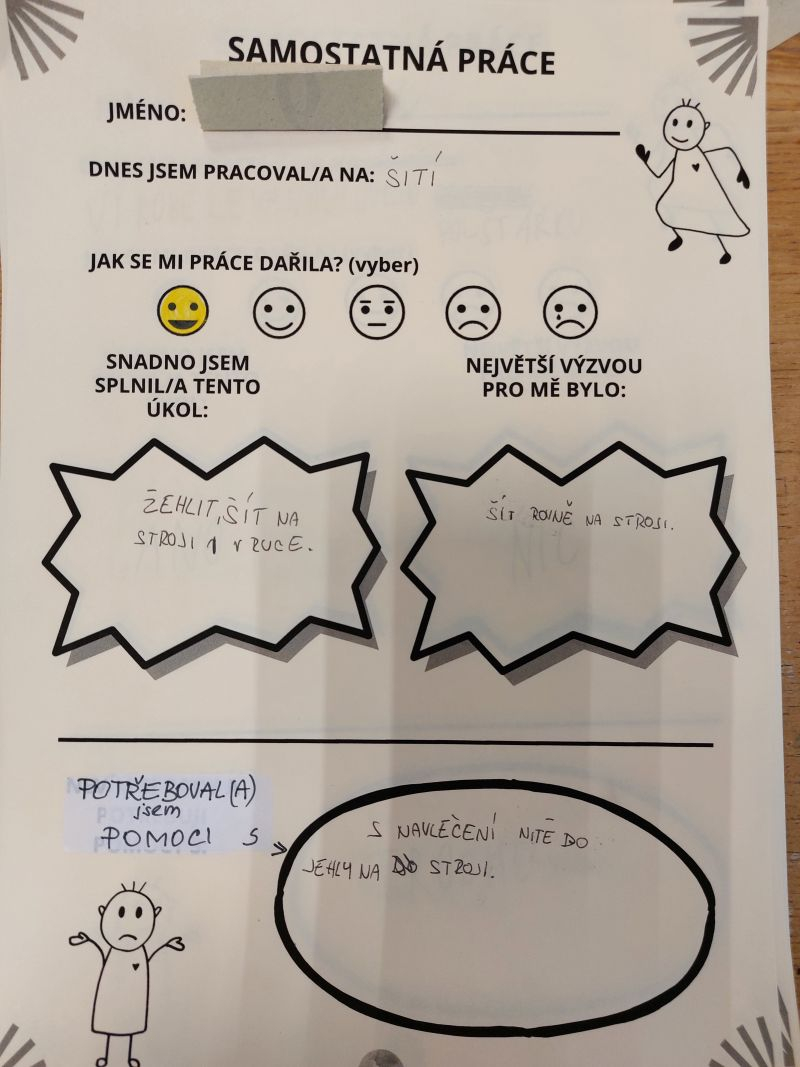 SAMOSTATNÁ PRÁCE
JMÉNO:
DNES JSEM PRACOVAL/A NA: ŠITÍ
JAK SE MI PRÁCE DAŘILA? (vyber)
SNADNO JSEM
SPLNIL/A TENTO
ÚKOL:
NEJVĚTŠÍ VÝZVOU
PRO MĚ BYLO:
ŽEHLIT, ŠÍT NA
STROJI I V RUCE.
ŠÍT ROVNĚ NA STROJI.
POTŘEBOVAL(A)
jsem
POMOCI S
S NAVLÉČENÍ NITĚ DO
JEHLY NA STROJI.